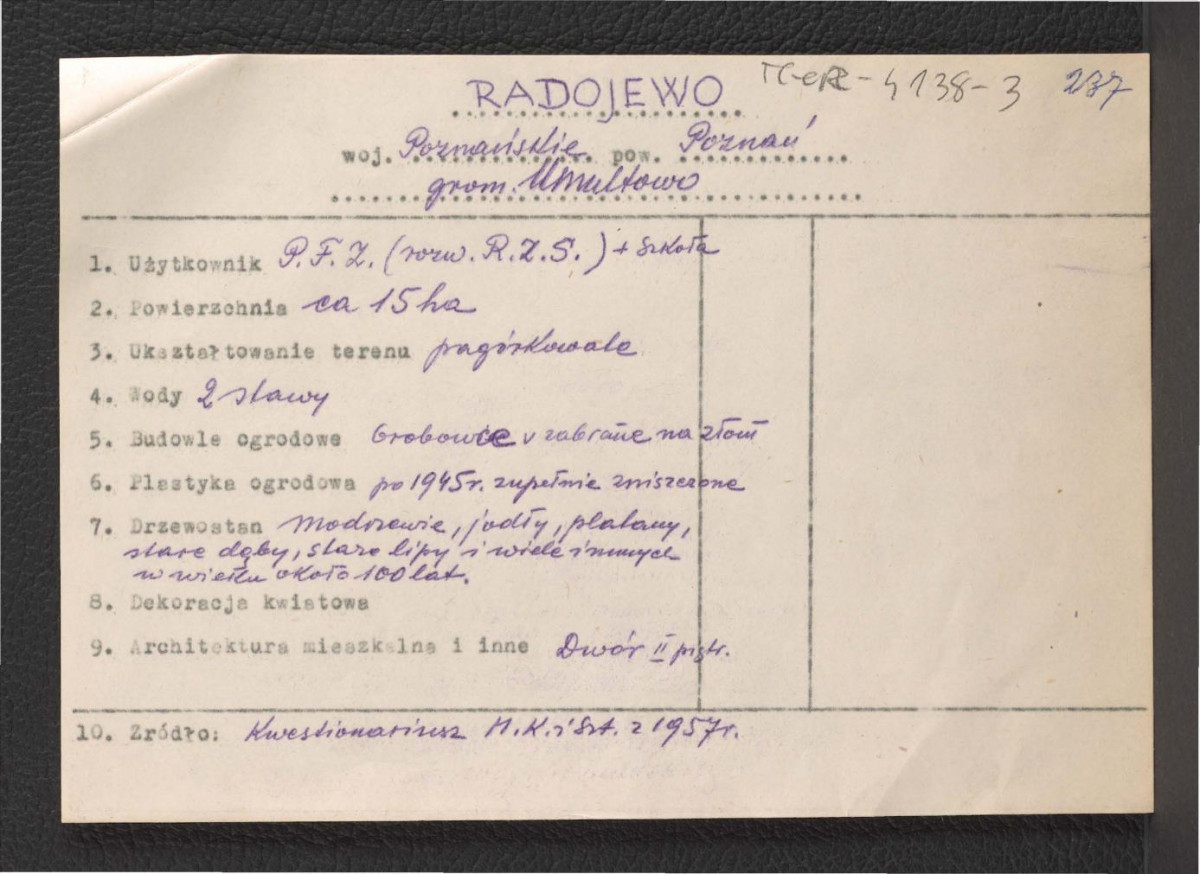 RADOJEWO 4138-3 237
woj. Poznańskie pow. Poznań
grom. Umultowo
1. Użytkownik P.F.Z. (rozw. R.Z.S.) + szkoła
2. Powierzchnia ca 15 ha
3. Ukształtowanie terenu pagórkowate
4. Wody 2 stawy
5. Budowle ogrodowe Grobowce zabrane na złom
6. Plastyka ogrodowa po 1945 r. zupełnie zniszczone
7. Drzewostan Modrzewie, jodły, platany,
stare dęby, stare lipy i wiele innych
w wieku około 100 lat.
8. Dekoracja kwiatowa
9. Architektura mieszkalna i inne Dwór II piętr.
10. Zródło: Kwestionariusz M.K. i Szt. z 1957 r.